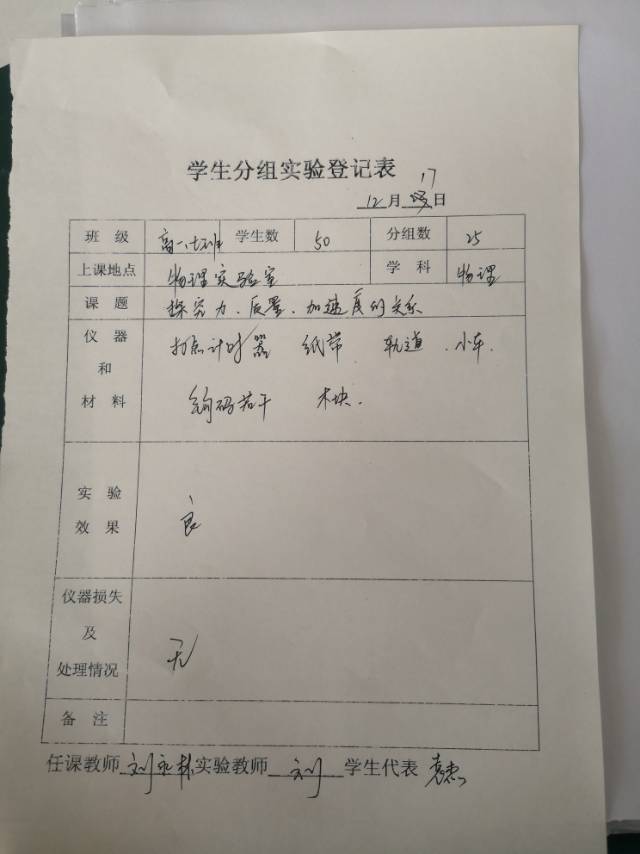 学生分组实验登记表
12月17日
班 级 高一 班 学生数 50 分组数 25
上课地点 物理实验室 学 科 物理
课 题 探究力、质量、加速度的关系
仪 器 打点计时器 纸带 轨道 、小车、
和
材 料 钩码若干 木块.
实 验
效 果 良
仪器损失
及
处理情况 无
备 注
任课教师 刘 林 实验教师 刘 学生代表